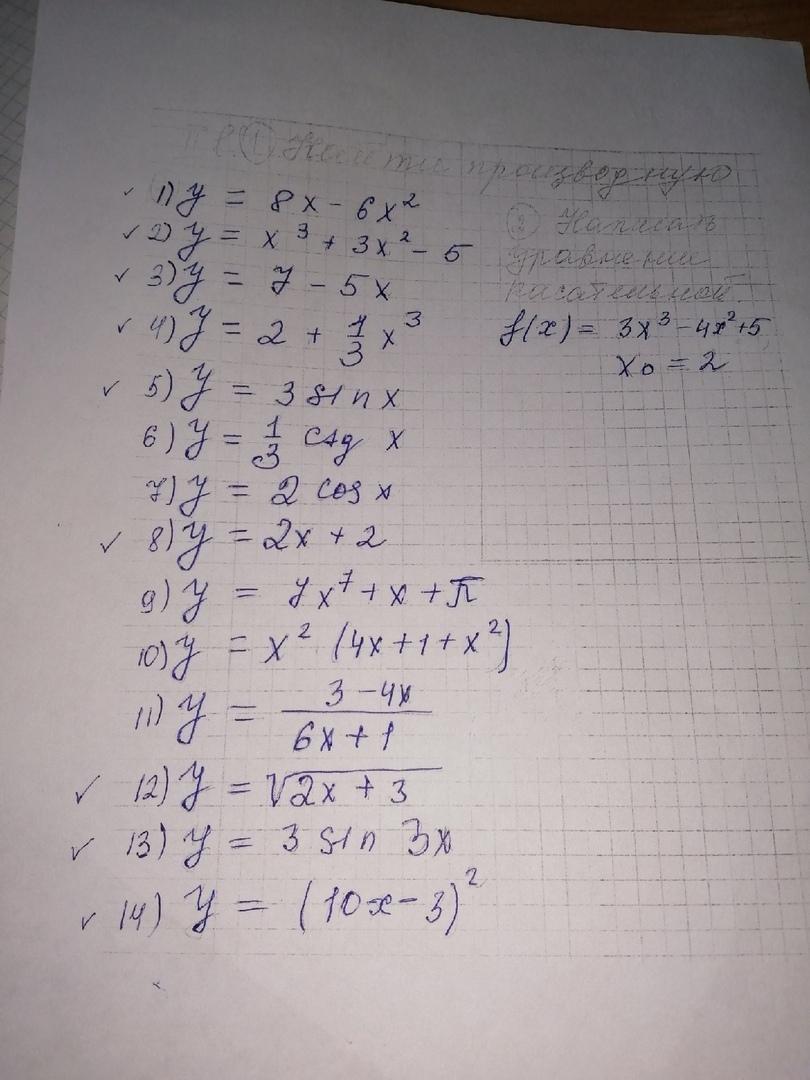 ① Найти производную
1) y = 8x - 6x²
2) y = x³ + 3x² - 5
3) y = 7 - 5x
4) y = 2 + 1/3 x³
5) y = 3 sin x
6) y = 1/3 ctg x
7) y = 2 cos x
8) y = 2x + 2
9) y = 7x⁷ + x + π
10) y = x² (4x + 1 + x²)
11) y = (3 - 4x)/(6x + 1)
12) y = √(2x + 3)
13) y = 3 sin 3x
14) y = (10x - 3)²
② Написать
уравнение
касательной
f(x) = 3x³ - 4x² + 5
x₀ = 2